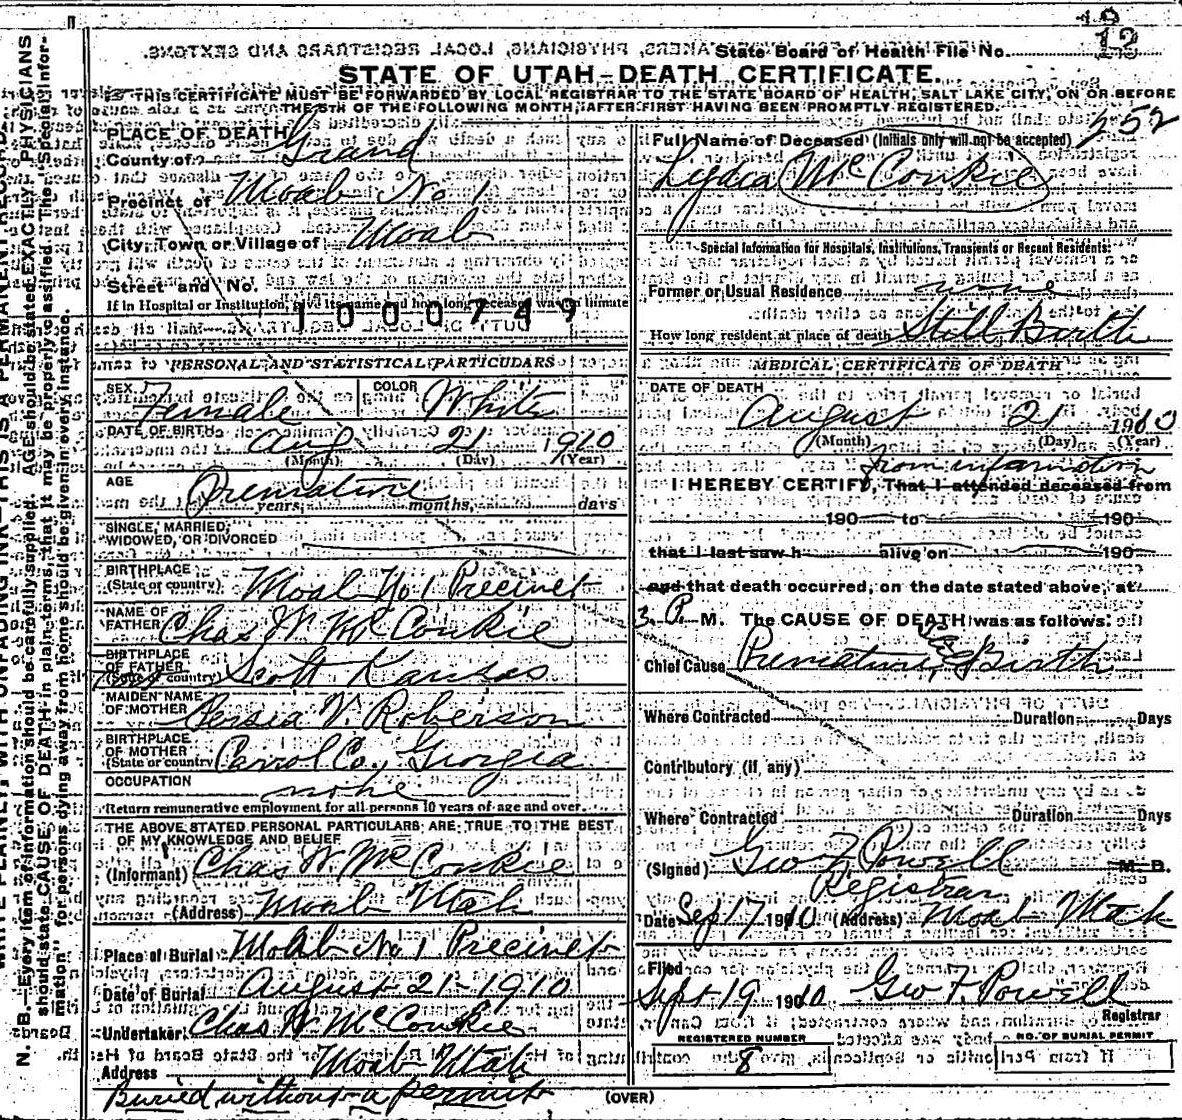 13
State Board of Health File No.
STATE OF UTAH—DEATH CERTIFICATE.
THIS CERTIFICATE MUST BE FORWARDED BY LOCAL REGISTRAR TO THE STATE BOARD OF HEALTH, SALT LAKE CITY, ON OR BEFORE
THE 5TH OF THE FOLLOWING MONTH, AFTER FIRST HAVING BEEN PROMPTLY REGISTERED.
PLACE OF DEATH
County of Grand
Precinct of Moab No 1
City, Town or Village of Moab
Street and No.
If in Hospital or Institution, give its name and how long deceased was an inmate
1000749
PERSONAL AND STATISTICAL PARTICULARS
SEX Female COLOR White
DATE OF BIRTH Aug 21 1910
(Month) (Day) (Year)
AGE Premature
years, months, days
SINGLE, MARRIED,
WIDOWED, OR DIVORCED
BIRTHPLACE
(State or country) Moab No 1 Precinct
NAME OF
FATHER Chas W McConkie
BIRTHPLACE
OF FATHER
(State or country) Scott Kansas
MAIDEN NAME
OF MOTHER Persia V. Roberson
BIRTHPLACE
OF MOTHER
(State or country Carrol Co., Georgia
OCCUPATION none
Return remunerative employment for all persons 10 years of age and over.
THE ABOVE STATED PERSONAL PARTICULARS ARE TRUE TO THE BEST
OF MY KNOWLEDGE AND BELIEF
(Informant) Chas W McConkie
(Address) Moab Utah
Place of Burial Moab No 1 Precinct
Date of Burial August 21-1910
Undertaker Chas W McConkie
Address Moab Utah
Buried without a permit
252
Full Name of Deceased (Initials only will not be accepted)
Lydia McConkie
Special Information for Hospitals, Institutions, Transients or Recent Residents:
Former or Usual Residence none
How long resident at place of death Still Birth
MEDICAL CERTIFICATE OF DEATH
DATE OF DEATH
August 21 1910
(Month) (Day) (Year)
from information
I HEREBY CERTIFY, That I attended deceased from
190 to 190
that I last saw h alive on 190
and that death occurred, on the date stated above, at
3. P. M. The CAUSE OF DEATH was as follows:
Chief Cause Premature Birth
Where Contracted Duration Days
Contributory (if any)
Where Contracted Duration Days
(Signed) Geo F Powell M. D.
Registrar
Date Sep 17 1910 (Address) Moab Utah
Filed
Sept 19 1910 Geo F. Powell
Registrar
REGISTERED NUMBER
8
NO. OF BURIAL PERMIT
(OVER)
N. B.—Every item of information should be carefully supplied. AGE should be stated EXACTLY. PHYSICIANS
should state CAUSE OF DEATH in plain terms, that it may be properly classified. The "Special Infor-
mation" for persons dying away from home should be given in every instance.